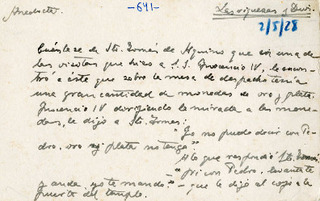 Anécdota
-641-
2/5/28
Cuéntase de Sto. Tomás de Aquino que en una de
las visitas que hizo a S.S. Inocencio IV, le encon-
tró a éste que sobre la mesa de despacho tenía
una gran cantidad de monedas de oro y plata.
Inocencio IV dirigiendo la mirada a las mone-
das, le dijo a Sto. Tomás:
"Yo no puedo decir con Pe-
dro, oro ni plata no tengo"
A lo que respondió Sto. Tomás:
"Ni con Pedro, levántate
y anda, yo te mando" - que le dijo al cojo a la
puerta del templo.